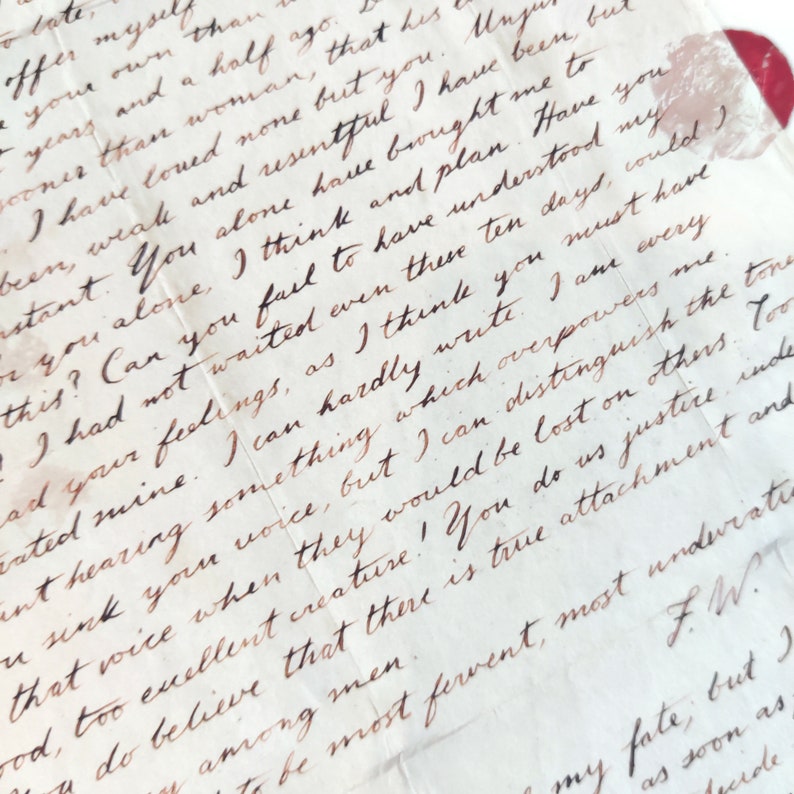 offer myself
your own than
years and a half ago.
sooner than woman, that his
I have loved none but you. Unjus
been, weak and resentful I have been, but
nstant. You alone have brought me to
or you alone, I think and plan. Have you
this? Can you fail to have understood my
? I had not waited even these ten days, could I
ad your feelings, as I think you must have
rated mine. I can hardly write. I am every
ant hearing something which overpowers me.
u sink your voice, but I can distinguish the tone
that voice when they would be lost on others. Too
ood, too excellent creature! You do us justice, inde
ou do believe that there is true attachment and
y among men.
to be most fervent, most undeviati
F. W.
my fate; but I
as soon as
decide